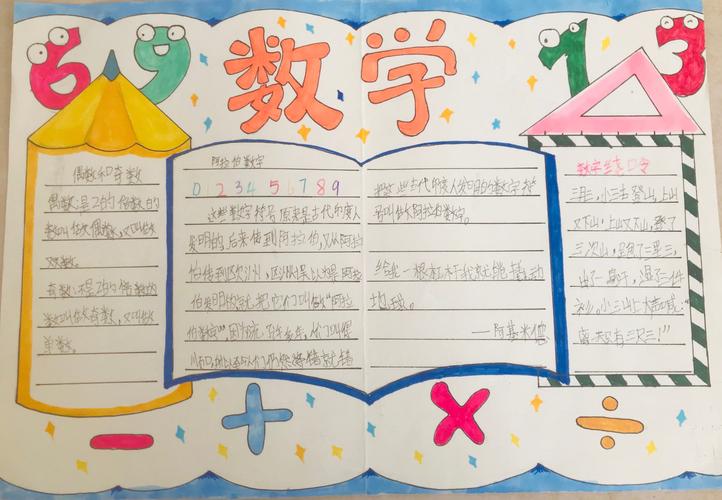 69
数学
13
偶数和奇数
偶数:是2的倍数的
数叫做偶数,又叫做
双数。
奇数:不是2的倍数的
数叫做奇数,又叫做
单数。
阿拉伯数字
0 1 2 3 4 5 6 7 8 9
这些数字符号原来是古代印度人
发明的,后来传到阿拉伯,又从阿拉
伯传到欧洲,欧洲人以为是阿拉
伯发明的就把它们叫做"阿拉
伯数字",因为流
把这些古代印度人发明的数字符
号叫做阿拉伯数字。
给我一根杠杆我就能撬动
地球。
——阿基米德
数字绕口令
三月三,小三去登山,上山
又下山,下山又上山,登了
三次山,跑了三里三,
出了一身汗,湿了三件
衫,小三山上大声喊:
"离天只有三尺三!"
- + × ÷